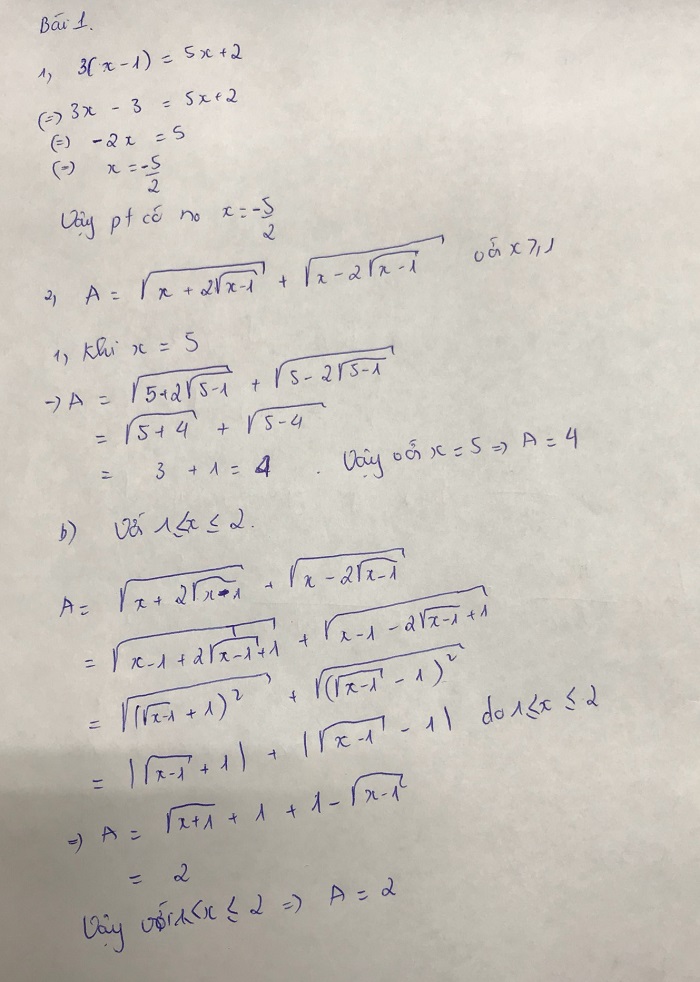 Bài 1.
1, 3(x-1) = 5x+2
(=) 3x - 3 = 5x+2
(=) -2x = 5
(=) x = -5/2
Vậy pt có no x = -5/2
2, A = √(x + 2√(x-1)) + √(x - 2√(x-1)) với x ≥ 1
1, Khi x = 5
-> A = √(5+2√(5-1)) + √(5-2√(5-1))
= √(5+4) + √(5-4)
= 3 + 1 = 4. Vậy với x = 5 => A = 4
b) Với 1 ≤ x ≤ 2.
A = √(x + 2√(x-1)) + √(x - 2√(x-1))
= √(x-1+2√(x-1)+1) + √(x-1-2√(x-1)+1)
= √((√(x-1) + 1)²) + √((√(x-1) - 1)²)
= |√(x-1) + 1| + |√(x-1) - 1| do 1 ≤ x ≤ 2
=> A = √(x+1) + 1 + 1 - √(x-1)
= 2
Vậy với 1 ≤ x ≤ 2 => A = 2